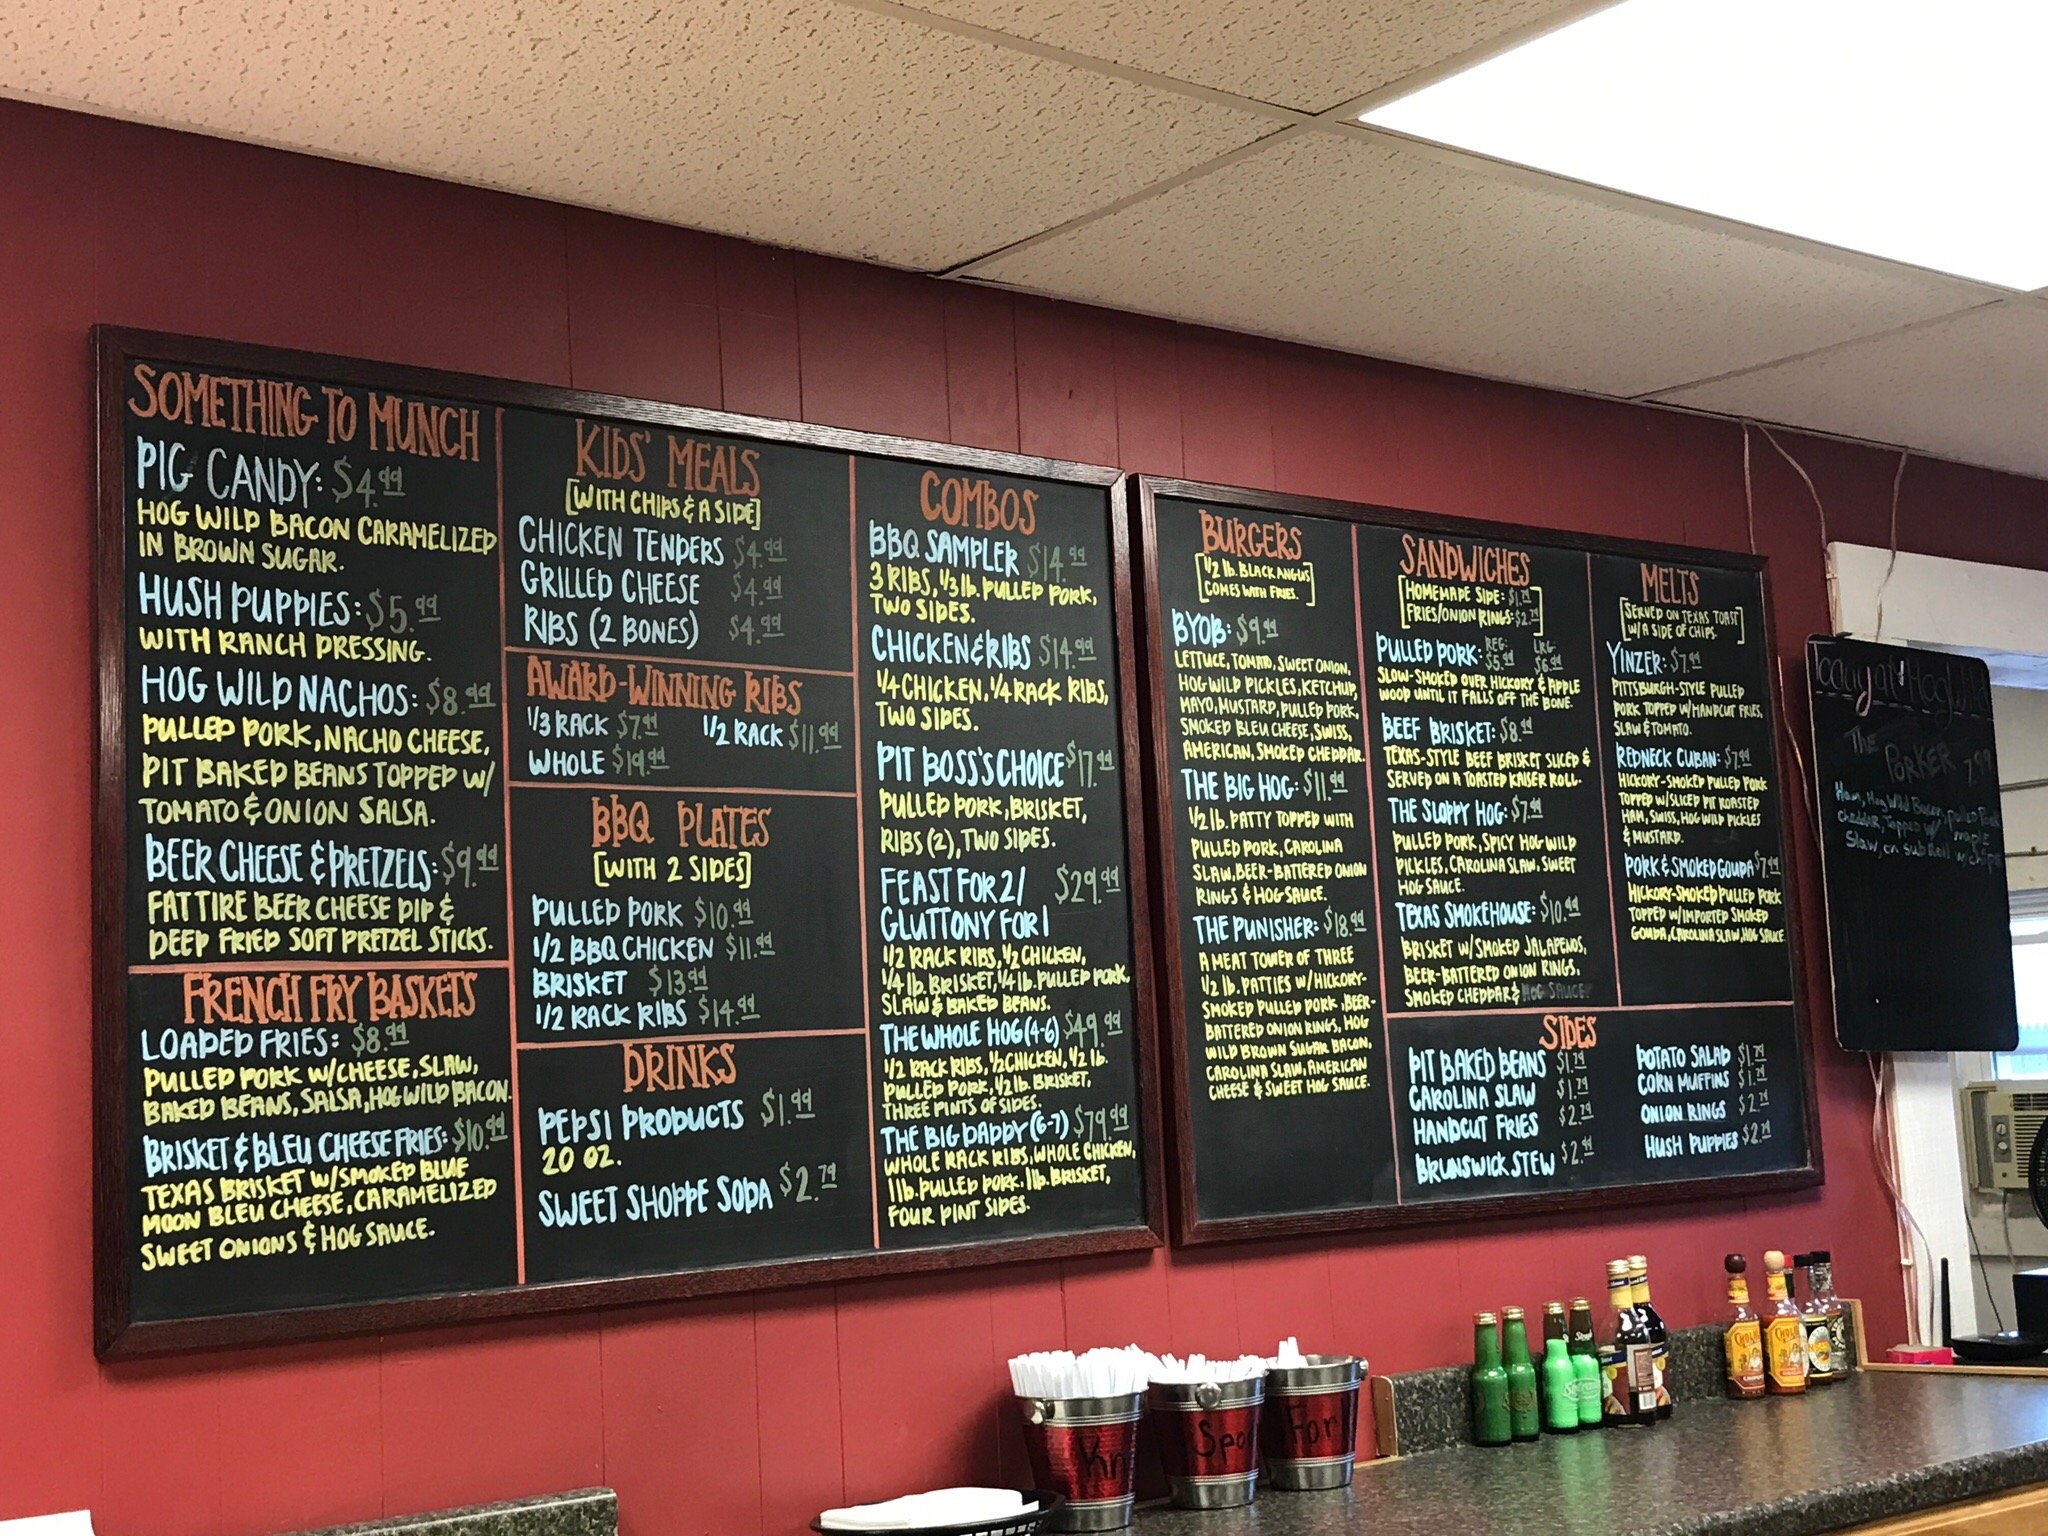 SOMETHING TO MUNCH
PIG CANDY: $4.99
HOG WILD BACON CARAMELIZED
IN BROWN SUGAR.
HUSH PUPPIES: $5.99
WITH RANCH DRESSING.
HOG WILD NACHOS: $8.99
PULLED PORK, NACHO CHEESE,
PIT BAKED BEANS TOPPED W/
TOMATO & ONION SALSA.
BEER CHEESE & PRETZELS: $9.99
FAT TIRE BEER CHEESE DIP &
DEEP FRIED SOFT PRETZEL STICKS.
FRENCH FRY BASKETS
LOADED FRIES: $8.99
PULLED PORK W/CHEESE, SLAW,
BAKED BEANS, SALSA, HOG WILD BACON.
BRISKET & BLEU CHEESE FRIES: $10.99
TEXAS BRISKET W/SMOKED BLUE
MOON BLEU CHEESE, CARAMELIZED
SWEET ONIONS & HOG SAUCE.
KIDS' MEALS
[WITH CHIPS & A SIDE]
CHICKEN TENDERS $4.99
GRILLED CHEESE $4.99
RIBS (2 BONES) $4.99
AWARD-WINNING RIBS
1/3 RACK $7.99 1/2 RACK $11.99
WHOLE $19.99
BBQ PLATES
[WITH 2 SIDES]
PULLED PORK $10.99
1/2 BBQ CHICKEN $11.99
BRISKET $13.99
1/2 RACK RIBS $14.99
DRINKS
PEPSI PRODUCTS $1.99
20 OZ.
SWEET SHOPPE SODA $2.79
COMBOS
BBQ SAMPLER $14.99
3 RIBS, 1/3 lb. PULLED PORK,
TWO SIDES.
CHICKEN & RIBS $14.99
1/4 CHICKEN, 1/4 RACK RIBS,
TWO SIDES.
PIT BOSS'S CHOICE $17.99
PULLED PORK, BRISKET,
RIBS (2), TWO SIDES.
FEAST FOR 2/ $29.99
GLUTTONY FOR 1
1/2 RACK RIBS, 1/2 CHICKEN,
1/4 lb. BRISKET, 1/4 lb. PULLED PORK,
SLAW & BAKED BEANS.
THE WHOLE HOG (4-6) $49.99
1/2 RACK RIBS, 1/2 CHICKEN, 1/2 lb.
PULLED PORK, 1/2 lb. BRISKET,
THREE PINTS OF SIDES.
THE BIG DADDY (6-7) $79.99
WHOLE RACK RIBS, WHOLE CHICKEN,
1 lb. PULLED PORK. 1 lb. BRISKET,
FOUR PINT SIDES.
BURGERS
[1/2 lb. BLACK ANGUS
COMES WITH FRIES.]
BYOB: $9.99
LETTUCE, TOMATO, SWEET ONION,
HOG WILD PICKLES, KETCHUP,
MAYO, MUSTARD, PULLED PORK,
SMOKED BLEU CHEESE, SWISS,
AMERICAN, SMOKED CHEDDAR.
THE BIG HOG: $11.99
1/2 lb. PATTY TOPPED WITH
PULLED PORK, CAROLINA
SLAW, BEER-BATTERED ONION
RINGS & HOG SAUCE.
THE PUNISHER: $18.99
A MEAT TOWER OF THREE
1/2 lb. PATTIES W/HICKORY-
SMOKED PULLED PORK, BEER-
BATTERED ONION RINGS, HOG
WILD BROWN SUGAR BACON,
CAROLINA SLAW, AMERICAN
CHEESE & SWEET HOG SAUCE.
SANDWICHES
[HOMEMADE SIDE: $1.79
FRIES/ONION RINGS: $2.79]
REG: LRG:
PULLED PORK: $5.99 $6.99
SLOW-SMOKED OVER HICKORY & APPLE
WOOD UNTIL IT FALLS OFF THE BONE.
BEEF BRISKET: $8.99
TEXAS-STYLE BEEF BRISKET SLICED &
SERVED ON A TOASTED KAISER ROLL.
THE SLOPPY HOG: $7.99
PULLED PORK, SPICY HOG WILD
PICKLES, CAROLINA SLAW, SWEET
HOG SAUCE.
TEXAS SMOKEHOUSE: $10.99
BRISKET W/SMOKED JALAPENOS,
BEER-BATTERED ONION RINGS,
SMOKED CHEDDAR & HOG SAUCE.
MELTS
[SERVED ON TEXAS TOAST
W/A SIDE OF CHIPS.]
YINZER: $7.99
PITTSBURGH-STYLE PULLED
PORK TOPPED W/HANDCUT FRIES,
SLAW & TOMATO.
REDNECK CUBAN: $7.99
HICKORY-SMOKED PULLED PORK
TOPPED W/SLICED PIT ROASTED
HAM, SWISS, HOG WILD PICKLES
& MUSTARD.
PORK & SMOKED GOUDA $7.99
HICKORY-SMOKED PULLED PORK
TOPPED W/IMPORTED SMOKED
GOUDA, CAROLINA SLAW, HOG SAUCE
SIDES
PIT BAKED BEANS $1.79
CAROLINA SLAW $1.79
HANDCUT FRIES $2.79
BRUNSWICK STEW $2.99
POTATO SALAD $1.79
CORN MUFFINS $1.79
ONION RINGS $2.79
HUSH PUPPIES $2.79
Today at Hog Wild
THE
PORKER 7.99
Ham, Hog Wild Bacon, pulled Pork
cheddar, Topped w/ maple
Slaw, on sub Roll w/ chips
Kn
Spo
For
CHOLULA
CHOLULA